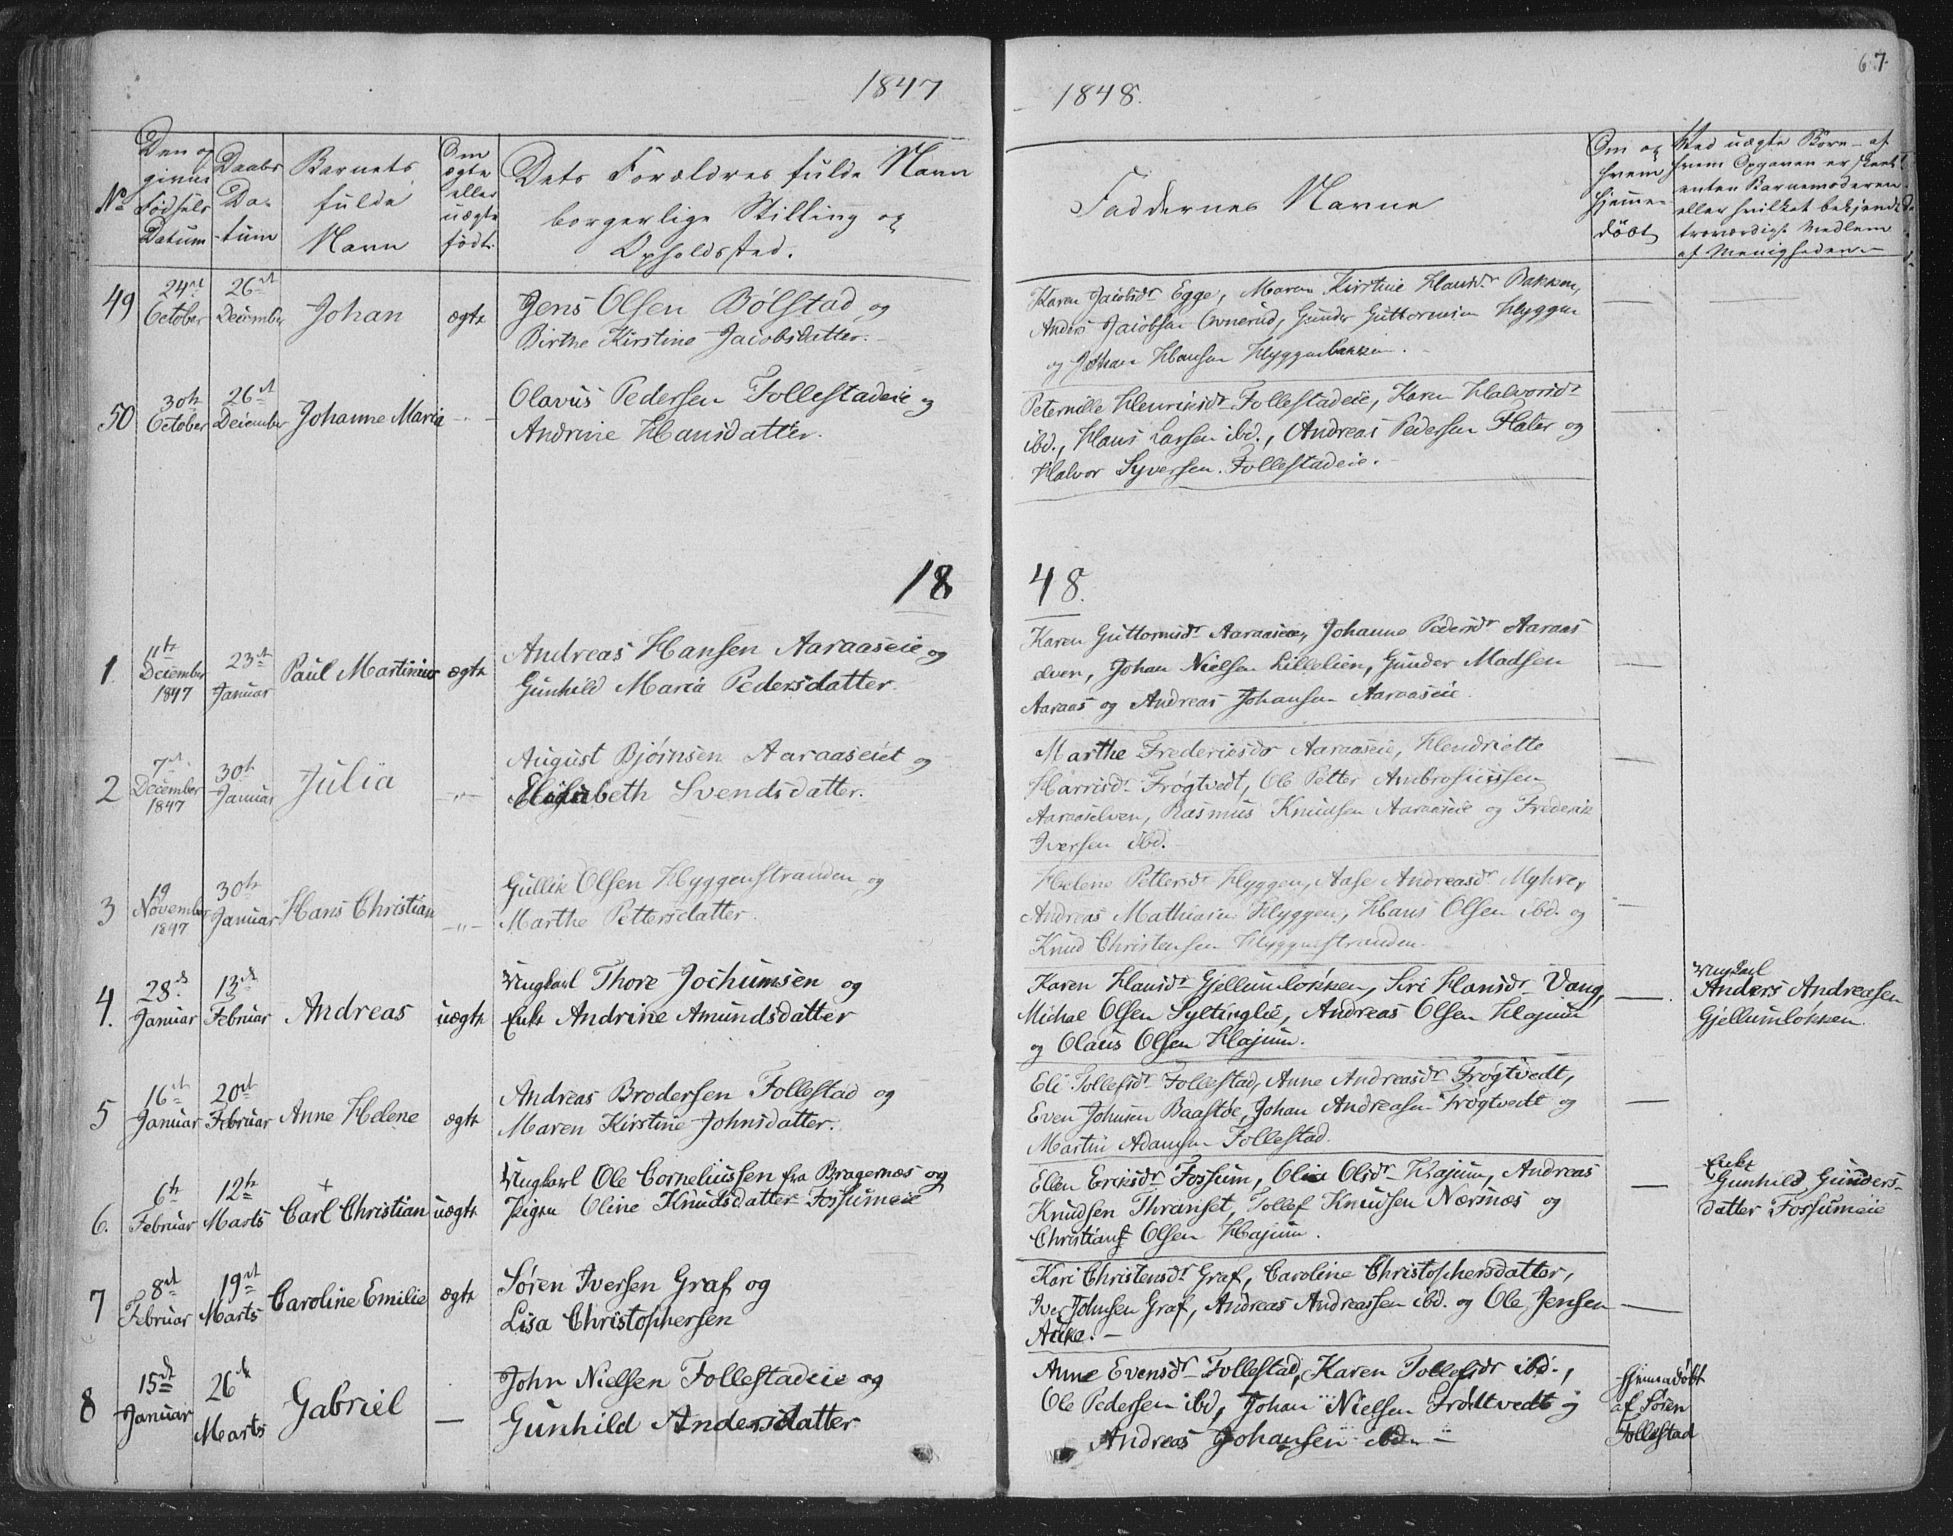 1847
No
Den op
givne
Fødsels
Datum
Daabs
Da-
tum
Barnets
fulde
Navn
Om
ægte
eller
uægte
født.
Dets Forældres fulde Navn
borgerlige Stilling og
Opholdssted.
49
24de
October
26de
December
Johan
ægte
Jens Olsen Bölstad og
Birthe Kirstine Jacobsdatter.
50
30te
October
26de
December
Johanne Maria
-"-
Olavus Pedersen Follestadeie og
Andrine Hansdatter.
18
1.
11te
December
1847
23de
Januar
Paul Martinius
ægte
Andreas Hansen Aaraaseie og
Gunhild Maria Pedersdatter.
2
7de
December
1847
30te
Januar
Julia
-"-
August Bjørnsen Aaraaseiet og
Elisabeth Svendsdatter.
3
19
November
1847
30te
Januar
Hans Christian
-"-
Gullik Olsen Hyggenstranden og
Marthe Pettersdatter.
4.
28de
Januar
13de
Februar
Andreas
uægte
Ungkarl Thore Jochumsen og
Enke Andrine Amundsdatter
5
16de
Januar
20de
Februar
Anne Helene
ægte
Andreas Brodersen Follestad og
Maren Kirstine Johnsdatter.
6.
6te
Februar
12te
Marts
+
Carl Christian
uægte
Ungkarl Ole Corneliussen fra Bragernæs og
Pigen Oline Knudsdatter Fossumeie
7
8de
Februar
19de
Marts
Caroline Emilie
ægte
Søren Iversen Graf og
Lisa Christophersen
8
15de
Januar
26de
Marts
Gabriel
—
John Nielsen Follestadeie og
Gunhild Andersdatter
67.
1848.
Faddernes Navne
Om og
hvem
hjemme-
döbt
Ved uægte Börn - af
hvem Opgaven er skeet
enten Barnemoderen
eller hvilket bekjendt
troværdigt Medlem
af Menigheden.-
Karen Jacobsdr Egge, Maren Kirstine Hansdr Bakken,
Anders Jacobsen Ovnerud, Gunder Guttormsen Hyggen
og Johan Hansen Hyggenbakken.
Peternille Henriksdr Follestadeie, Karen Halvorsdr
ibd., Hans Larsen ibd., Andreas Pedersen Flater og
Halvor Syversen Follestadeie.
48.
Karen Guttormsdr Aaraaseie, Johanne Pedersdr Aaraas
elven, Johan Nielsen Lillelien, Gunder Madsen
Aaraas og Andreas Johansen Aaraaseie.
Marthe Frederiksdr Aaraaseie, Hendriette
Harrisdr Frøgtvedt, Ole Petter Ambrosiussen
Aaraaselven, Rasmus Knudsen Aaraaseie og Frederik
Iversen ibd.
Helene Pettersdr Hyggen, Aase Andreasdr Myhre,
Andreas Mathiasen Hyggen, Hans Olsen ibd. og
Knud Christensen Hyggenstranden.
Karen Hansdr Gjellumløkken, Siri Hansdr Vang,
Michael Olsen Syltinglie, Andreas Olsen Hajum
og Olaus Olsen Hajum.
Ungkarl
Anders Andreasen
Gjellumløkken.
Eli Tollefsdr Follestad, Anne Andreasdr Frøgtvedt,
Even Johnsen Baastøe, Johan Andreasen Frøgtvedt og
Martin Adamsen Follestad.
Ellen Eriksdr Fossum, Olia Olsdr Hajum, Andreas
Knudsen Thranset, Tollef Knudsen Nærsnæs og
Christian Olsen Hajum.
Enke
Gunhild Gunders-
datter Fossumeie
Kari Christensdr Graf, Caroline Christophersdatter,
Iver Johnsen Graf, Andreas Andreassen ibd. og Ole Jensen
Anne Evensdr Follestad, Karen Tollefsdr ibd.,
Ole Pedersen ibd, Johan Nielsen Frøtvedt og
Andreas Johansen ibd. -
Hjemmedöbt
af Søren
Follestad